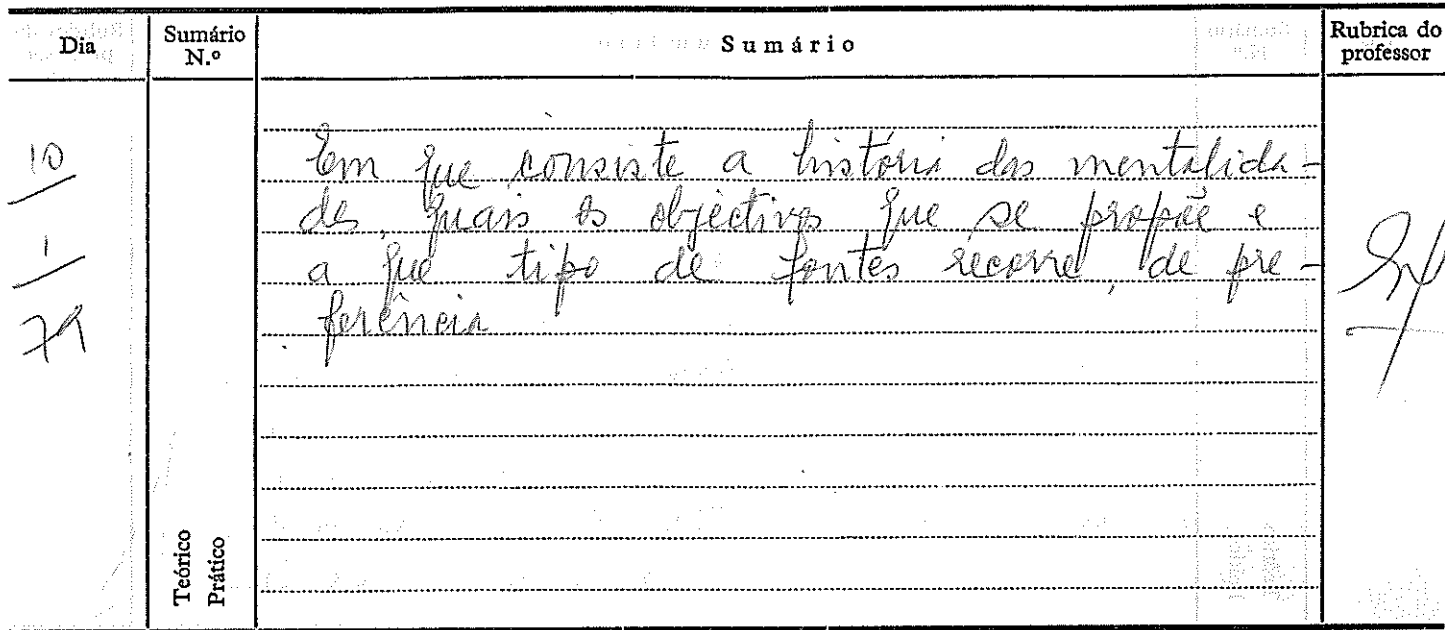 Dia
Sumário N.º
Sumário
Rubrica do professor
10
1
79
Em que consiste a história das mentalida-
des, quais os objectivos que se propõe e
a que tipo de fontes recorre, de pre-
ferência
Teórico
Prático